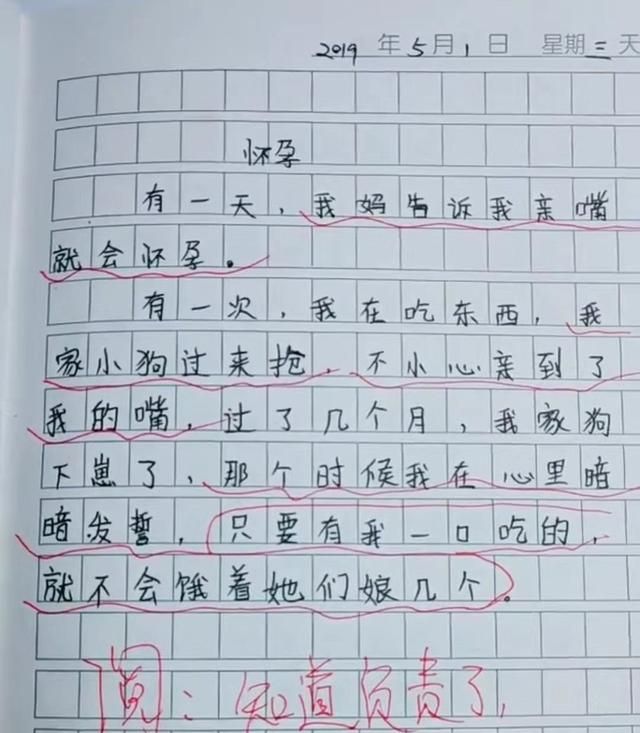 2019年5月1日 星期三 天
怀孕
有一天，我妈告诉我亲嘴
就会怀孕。
有一次，我在吃东西，我
家小狗过来抢，不小心亲到了
我的嘴，过了几个月，我家狗
下崽了，那个时候我在心里暗
暗发誓，只要有我一口吃的，
就不会饿着她们娘几个。
阅：知道负责了，